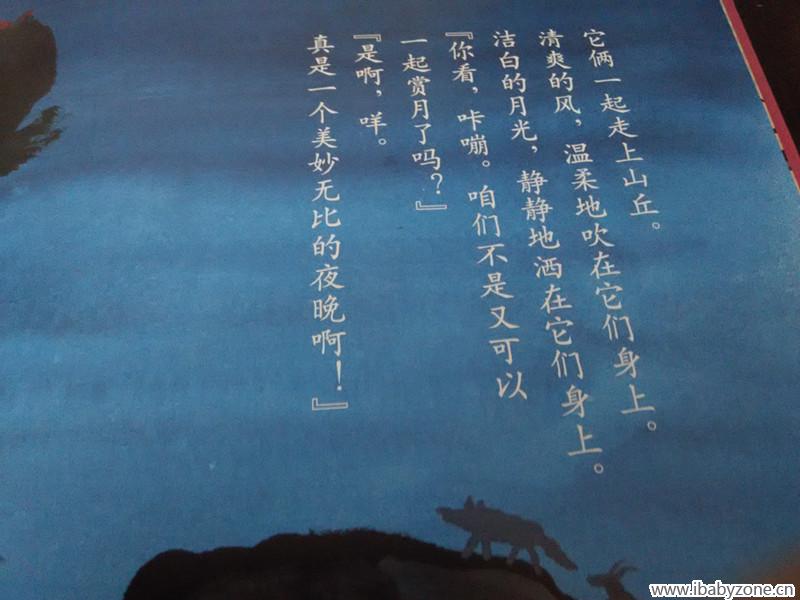 它俩一起走上山丘。
清爽的风，温柔地吹在它们身上。
洁白的月光，静静地洒在它们身上。
『你看，咔嘣。咱们不是又可以
一起赏月了吗？』
『是啊，咩。
真是一个美妙无比的夜晚啊！』
www.ibabyzone.cn